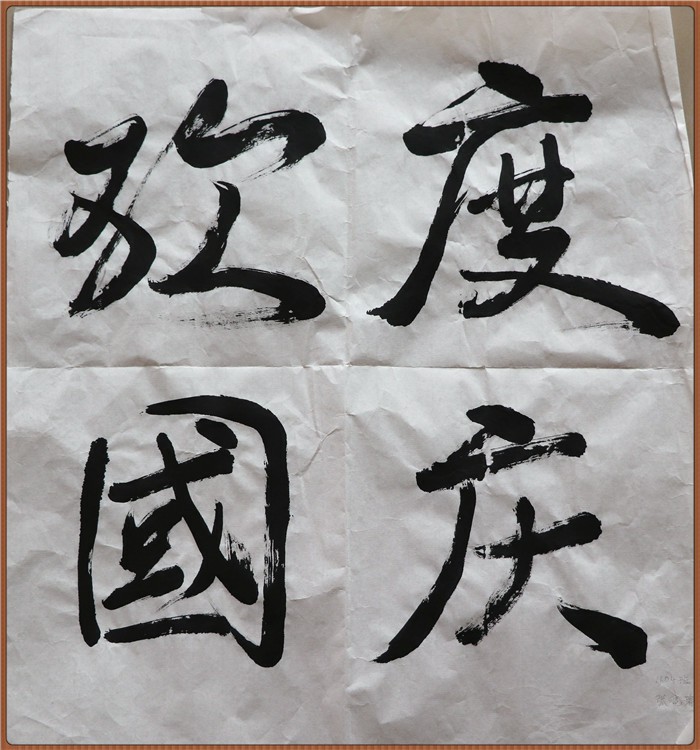 欢度
國庆